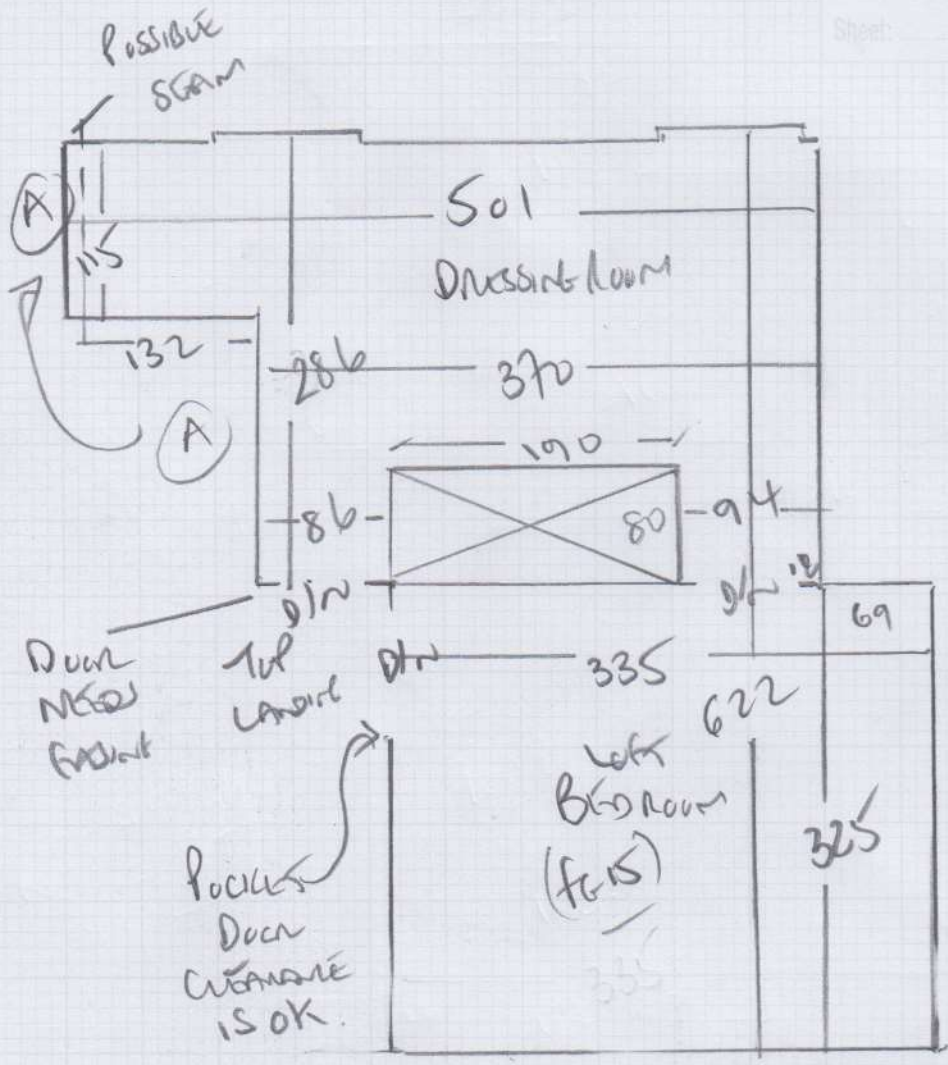 Sheet:
POSSIBLE
SEAM
A
501
115
DRESSING ROOM
132
286
370
A
190
86
80
94
D/N
D/N
12
69
DOOR
NEEDS
EASING
TOP
LANDING
D/N
335
622
LOFT
BEDROOM
325
POCKET
DOOR
CLEARANCE
IS OK.
335